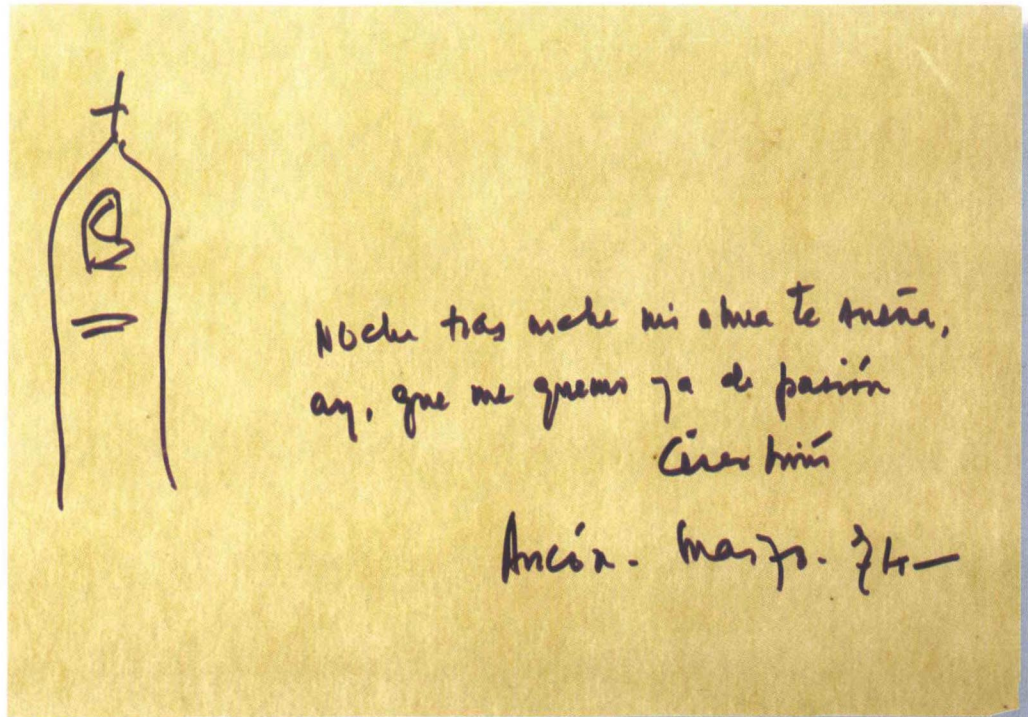 Noche tras noche mi alma te sueña,
ay, que me quemo ya de pasión
Ancón. Marzo. 74